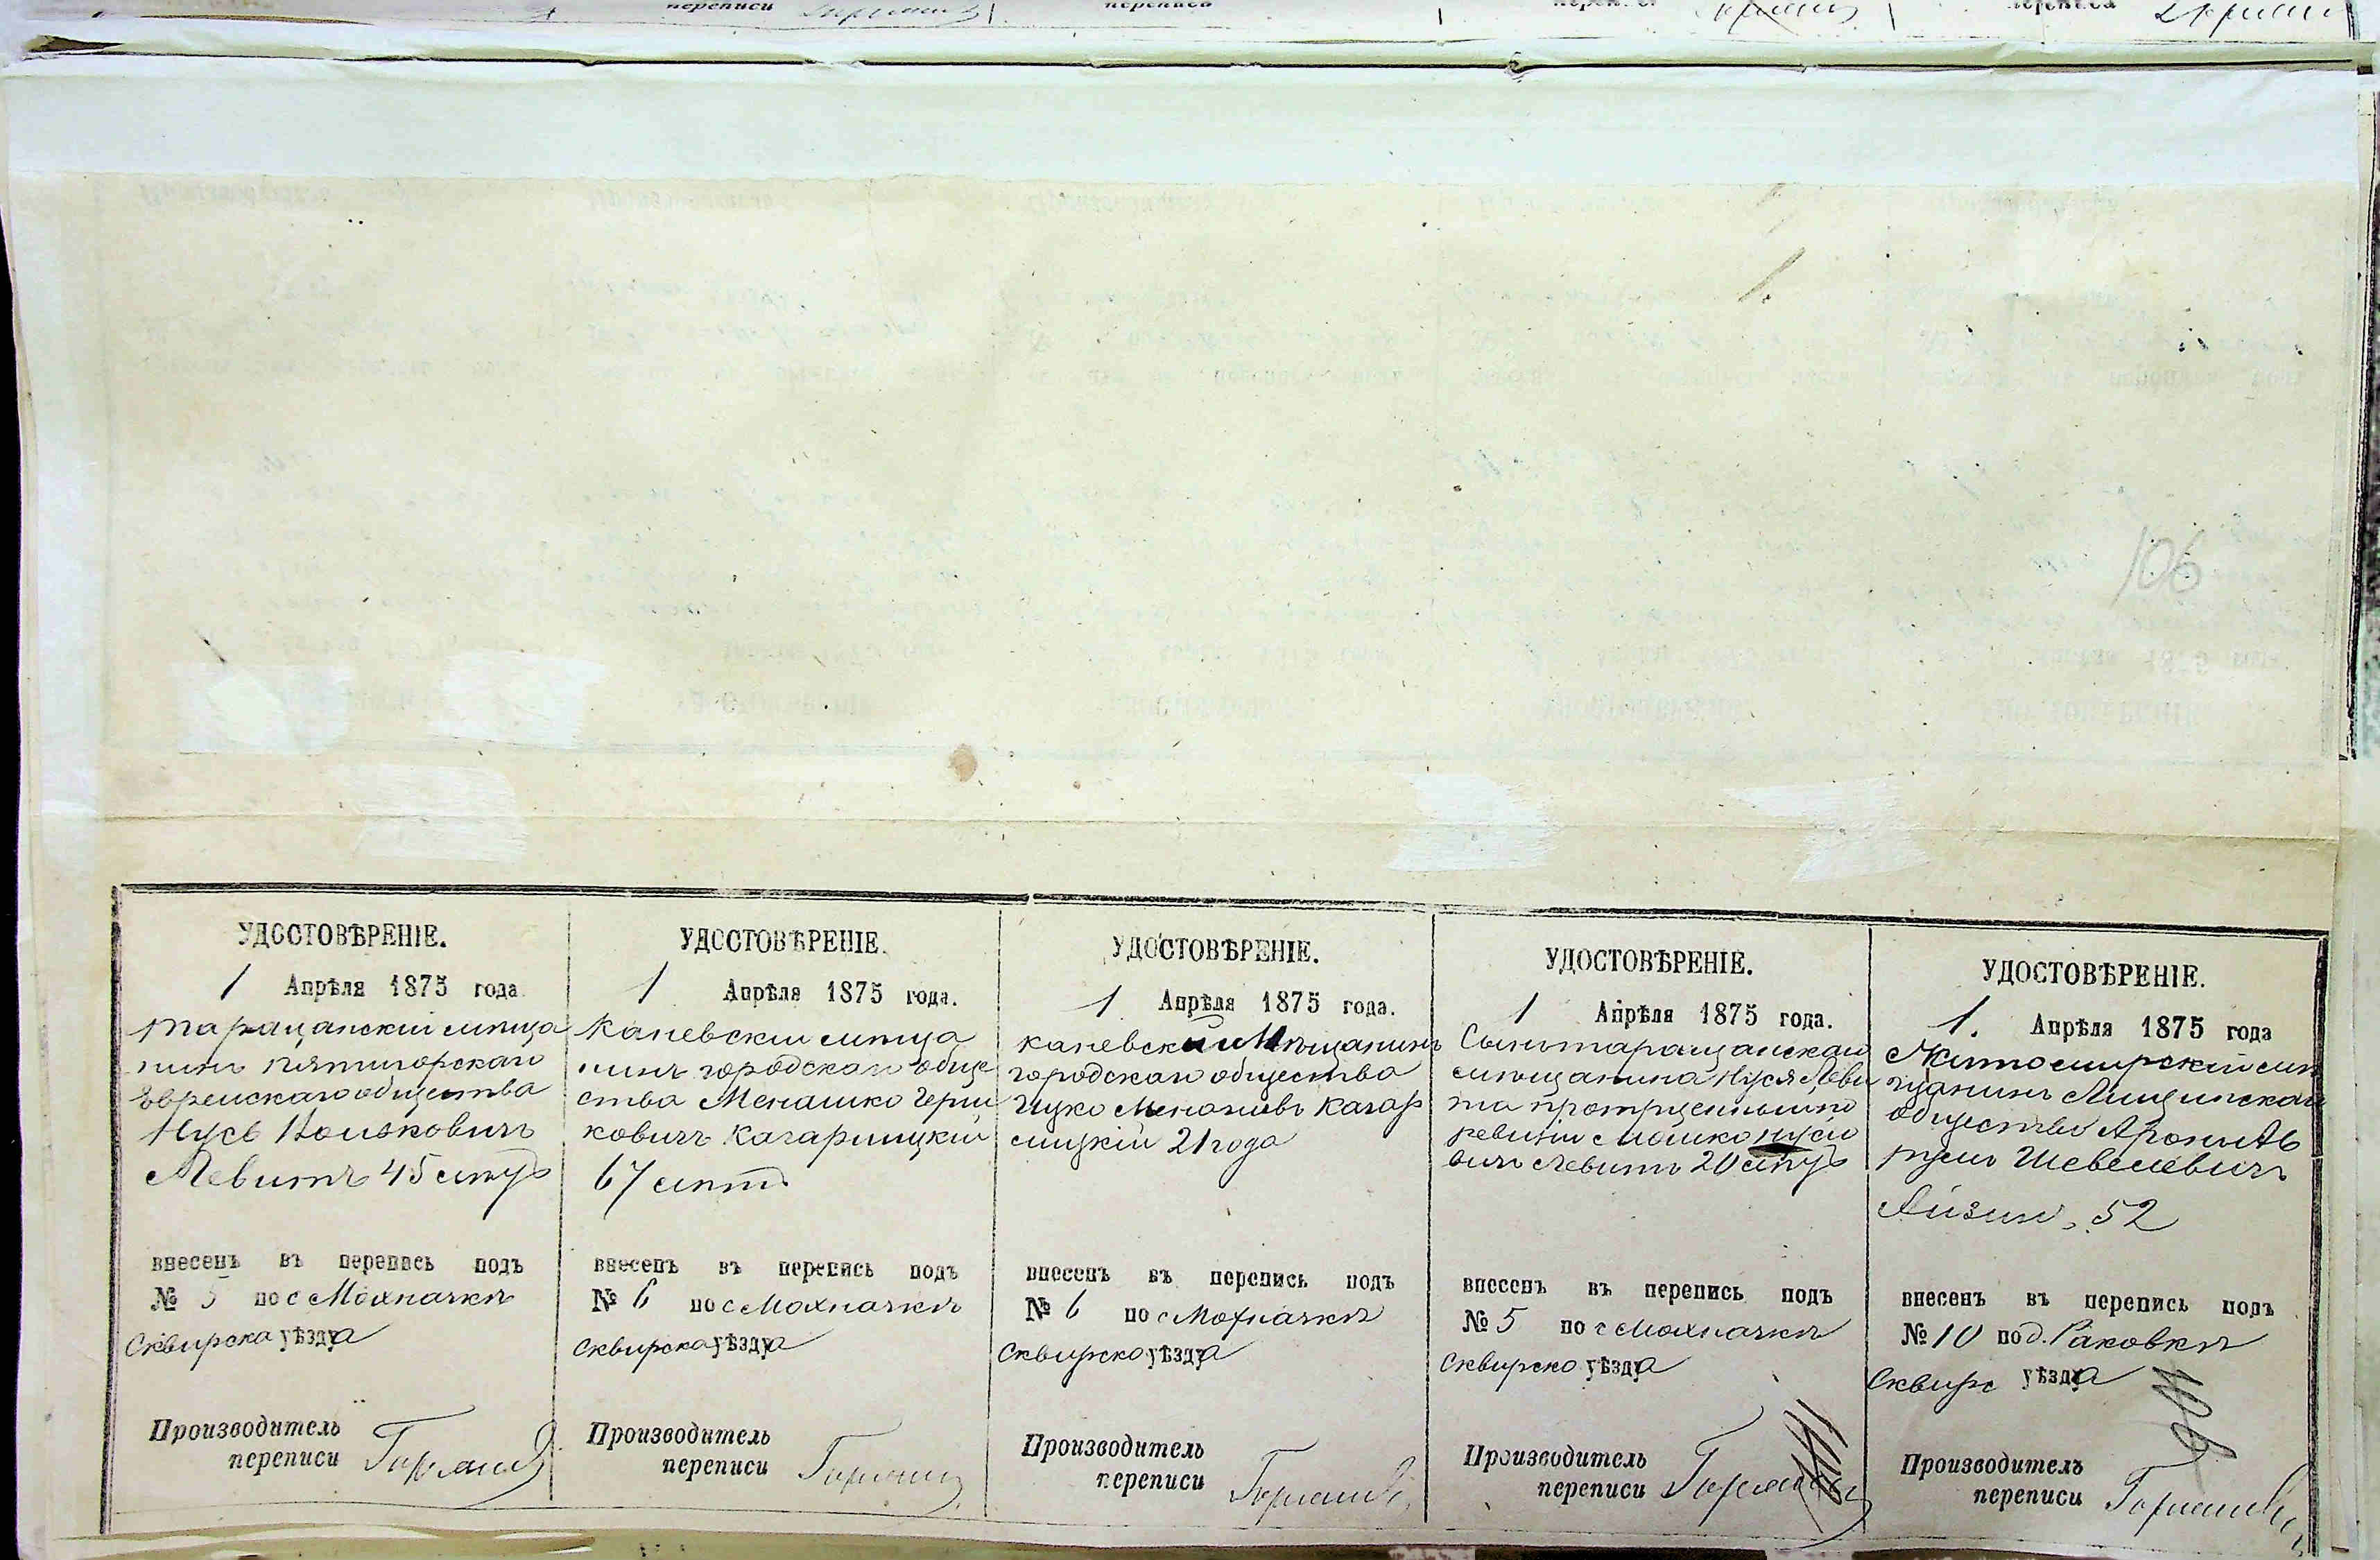 переписи
переписи
переписи
106
УДОСТОВѢРЕНІЕ.
1 Апрѣля 1875 года
Таращанскій мѣща
нинъ Пятигорскаго
Еврейскаго общества
Нусь Волькович
Левитъ 45 лѣтъ
внесенъ въ перепись подъ
№ 5 по с Мохначкѣ
Сквирска уѣзда
Производитель
переписи
УДОСТОВѢРЕНІЕ.
1 Апрѣля 1875 года.
Каневскій мѣща
нинъ городскаго обще
ства Менашко Герш
ковичъ Кагарлицкій
67 лѣтъ
внесенъ въ перепись подъ
№ 6 по с Мохначкѣ
Сквирска уѣзда
Производитель
переписи
УДОСТОВѢРЕНІЕ.
1 Апрѣля 1875 года.
Каневскій Мѣщанинъ
городскаго общества
Ицко Менашевъ Кагар
лицкій 21 года
внесенъ въ перепись подъ
№ 6 по с Мохначкѣ
Сквирско уѣзда
Производитель
переписи
УДОСТОВѢРЕНІЕ.
1 Апрѣля 1875 года.
Сынъ таращанскаго
мѣщанина Нуся Леви
та
ревизіи Мошко Нусіо
вичъ Левитъ 20 лѣтъ
внесенъ въ перепись подъ
№ 5 по с Мохначкѣ
Сквирско уѣзда
Производитель
переписи
УДОСТОВѢРЕНІЕ.
1. Апрѣля 1875 года
Житомирскій мѣ
щанинъ Лещинскаго
общества Аронъ Лб
Шевелевичъ
Айзин. 52
внесенъ въ перепись подъ
№ 10 по д. Раковкѣ
Сквирс уѣзда
106
Производитель
переписи